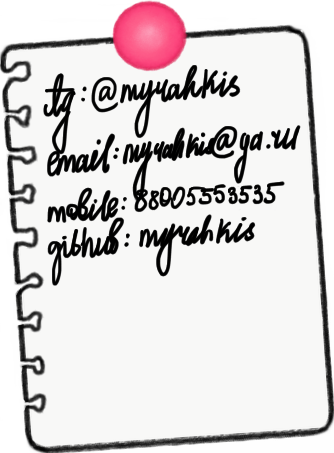 tg: @myrahkis
email: myrahkis@ya.ru
mobile: 88005553535
github: myrahkis